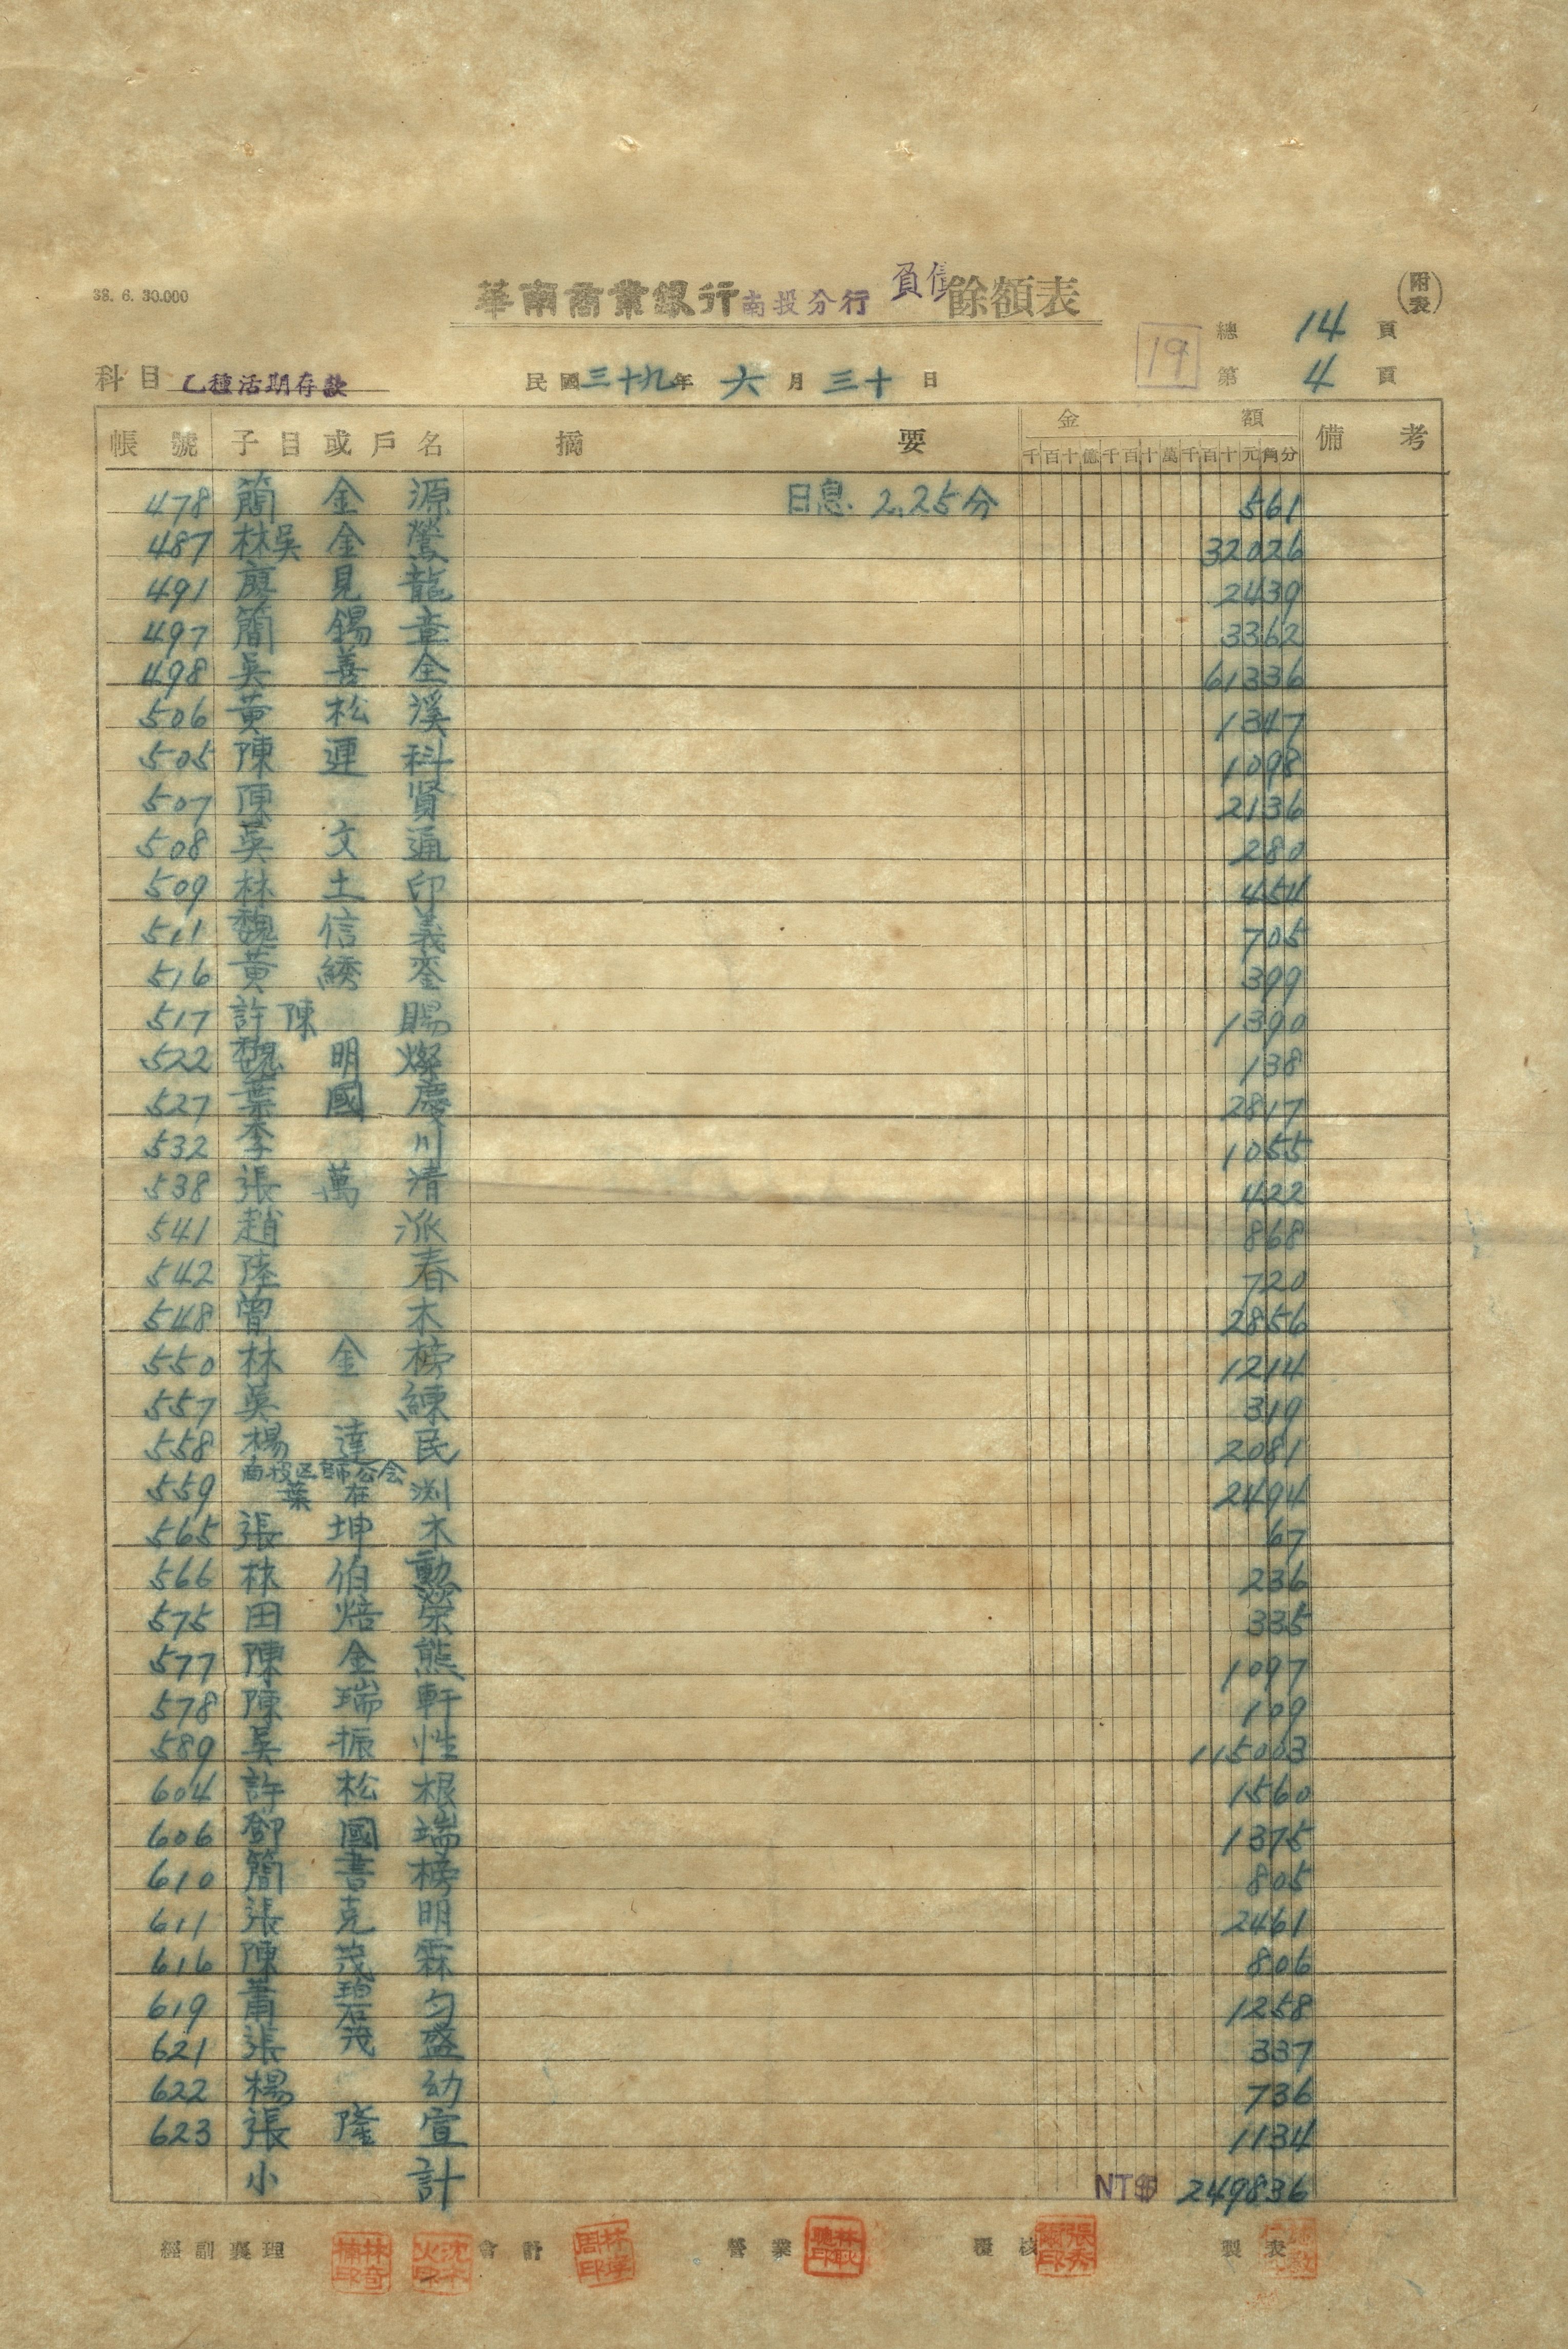 38. 6. 30.000
華南商業銀行南投分行 負債餘額表
(附表)
總 14 頁
19
第 4 頁
科目 乙種活期存款 民國三十九年 六 月 三十 日
帳號 子目或戶名 摘要 金額 備考
千百十億千百十萬千百十元角分
478 簡金源 日息. 2.25分 561
487 林吳金鶯 32026
491 廖見龍 2439
497 簡錫章 3362
498 吳善全 61336
506 黃松溪 1347
505 陳運科 1098
507 陳賢 2136
508 吳文通 280
509 林土印 454
511 魏信義 705
516 黃綉銮 399
517 許陳賜 1390
522 魏明燦 138
527 葉國慶 2817
532 李川 1055
538 張萬清 422
541 趙派 868
542 陸春 720
548 曾木 2856
550 林金榜 1214
557 吳練 319
558 楊達民 2081
南投医師公会
559 葉在渕 2494
565 張坤木 67
566 林伯勳 236
575 田焙榮 335
577 陳金熊 1097
578 陳瑞軒 109
589 吳振性 115003
604 許松根 1560
606 鄧國端 1375
610 簡書榜 805
611 張克明 2461
616 陳茂霖 806
619 蕭碧勻 1258
621 張茂盛 337
622 楊幼 736
623 張隆宣 1134
小計 NT$ 249836
經副襄理 會計 營業 覆核 製表